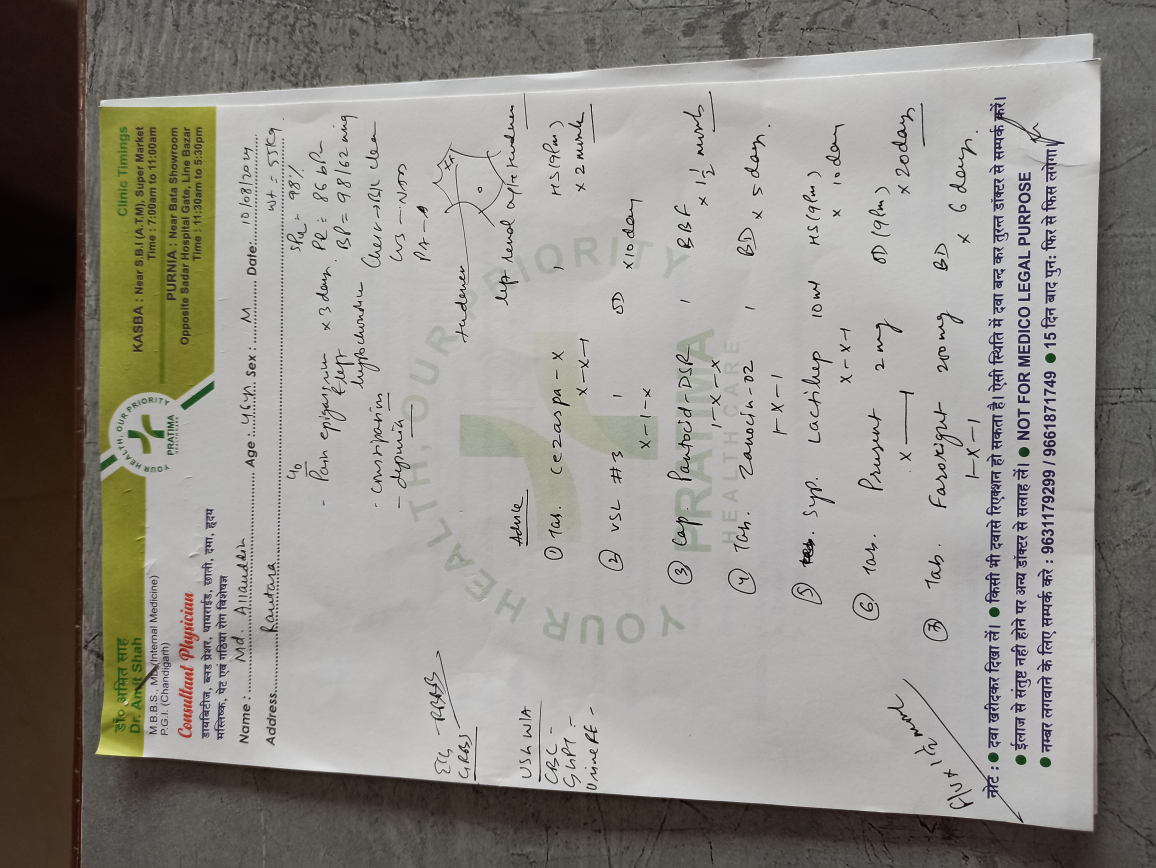 डा० अमित साह
Dr. Amit Shah
M.B.B.S., MD (Internal Medicine)
P.G.I. (Chandigarh)
Consultant Physician
डायबिटीज, ब्लड प्रेशर, थायराईड, छाती, दमा, हृदय
मस्तिष्क, पेट एवं गठिया रोग विशेषज्ञ
YOUR HEALTH, OUR PRIORITY
PRATIMA
HEALTHCARE
Clinic Timings
KASBA : Near S.B.I (A.T.M), Super Market
Time : 7:00am to 11:00am
PURNIA : Near Bata Showroom
Opposite Sadar Hospital Gate, Line Bazar
Time : 11:30am to 5:30pm
Name : Md. Allauddin Age : 46y Sex : M Date: 10/08/2024
Address Rautara Wt = 55kg
c/o
- Pain epigastrium x 3 days
& left
hypochondrium
- constipation
SPO2 = 98%
PR = 86 bpm
BP = 98/62 mmHg
Chest → B/L clear
CVS - NAD
tenderness
ECG - RBBB
GRBS
USG W/A
CBC -
SGPT -
Urine RE -
Advice
① Tab. Cezaspa - X 1 HS (9pm)
x-x-1 x 2 month
② VSL #3 1 OD x 10 day
x-1-x
③ Cap Pantocid DSR 1 BBF
1-x-x x 1 1/2 month
④ Tab. Zanocin-OZ 1 BD x 5 day.
1-x-1
⑤ Syp. Lactihep 10 ml HS (9pm)
x-x-1 x 10 day
⑥ Tab. 2mg OD (9pm)
x 20 days
⑦ Tab. 200mg BD
1-x-1 x 6 days
F/U + 1 1/2 month
YOUR HEALTH, OUR PRIORITY
PRATIMA
HEALTHCARE
नोट : ● दवा खरीदकर दिखा लें। ● किसी भी दवासे रिएक्शन हो सकता है। ऐसी स्थिति में दवा बन्द कर तुरन्त डॉक्टर से सम्पर्क करें।
● ईलाज से संतुष्ट नही होने पर अन्य डॉक्टर से सलाह लें। ● NOT FOR MEDICO LEGAL PURPOSE
● नम्बर लगवाने के लिए सम्पर्क करे : 9631179299 / 9661871749 ● 15 दिन बाद पुन: फिर से फिस लगेगा